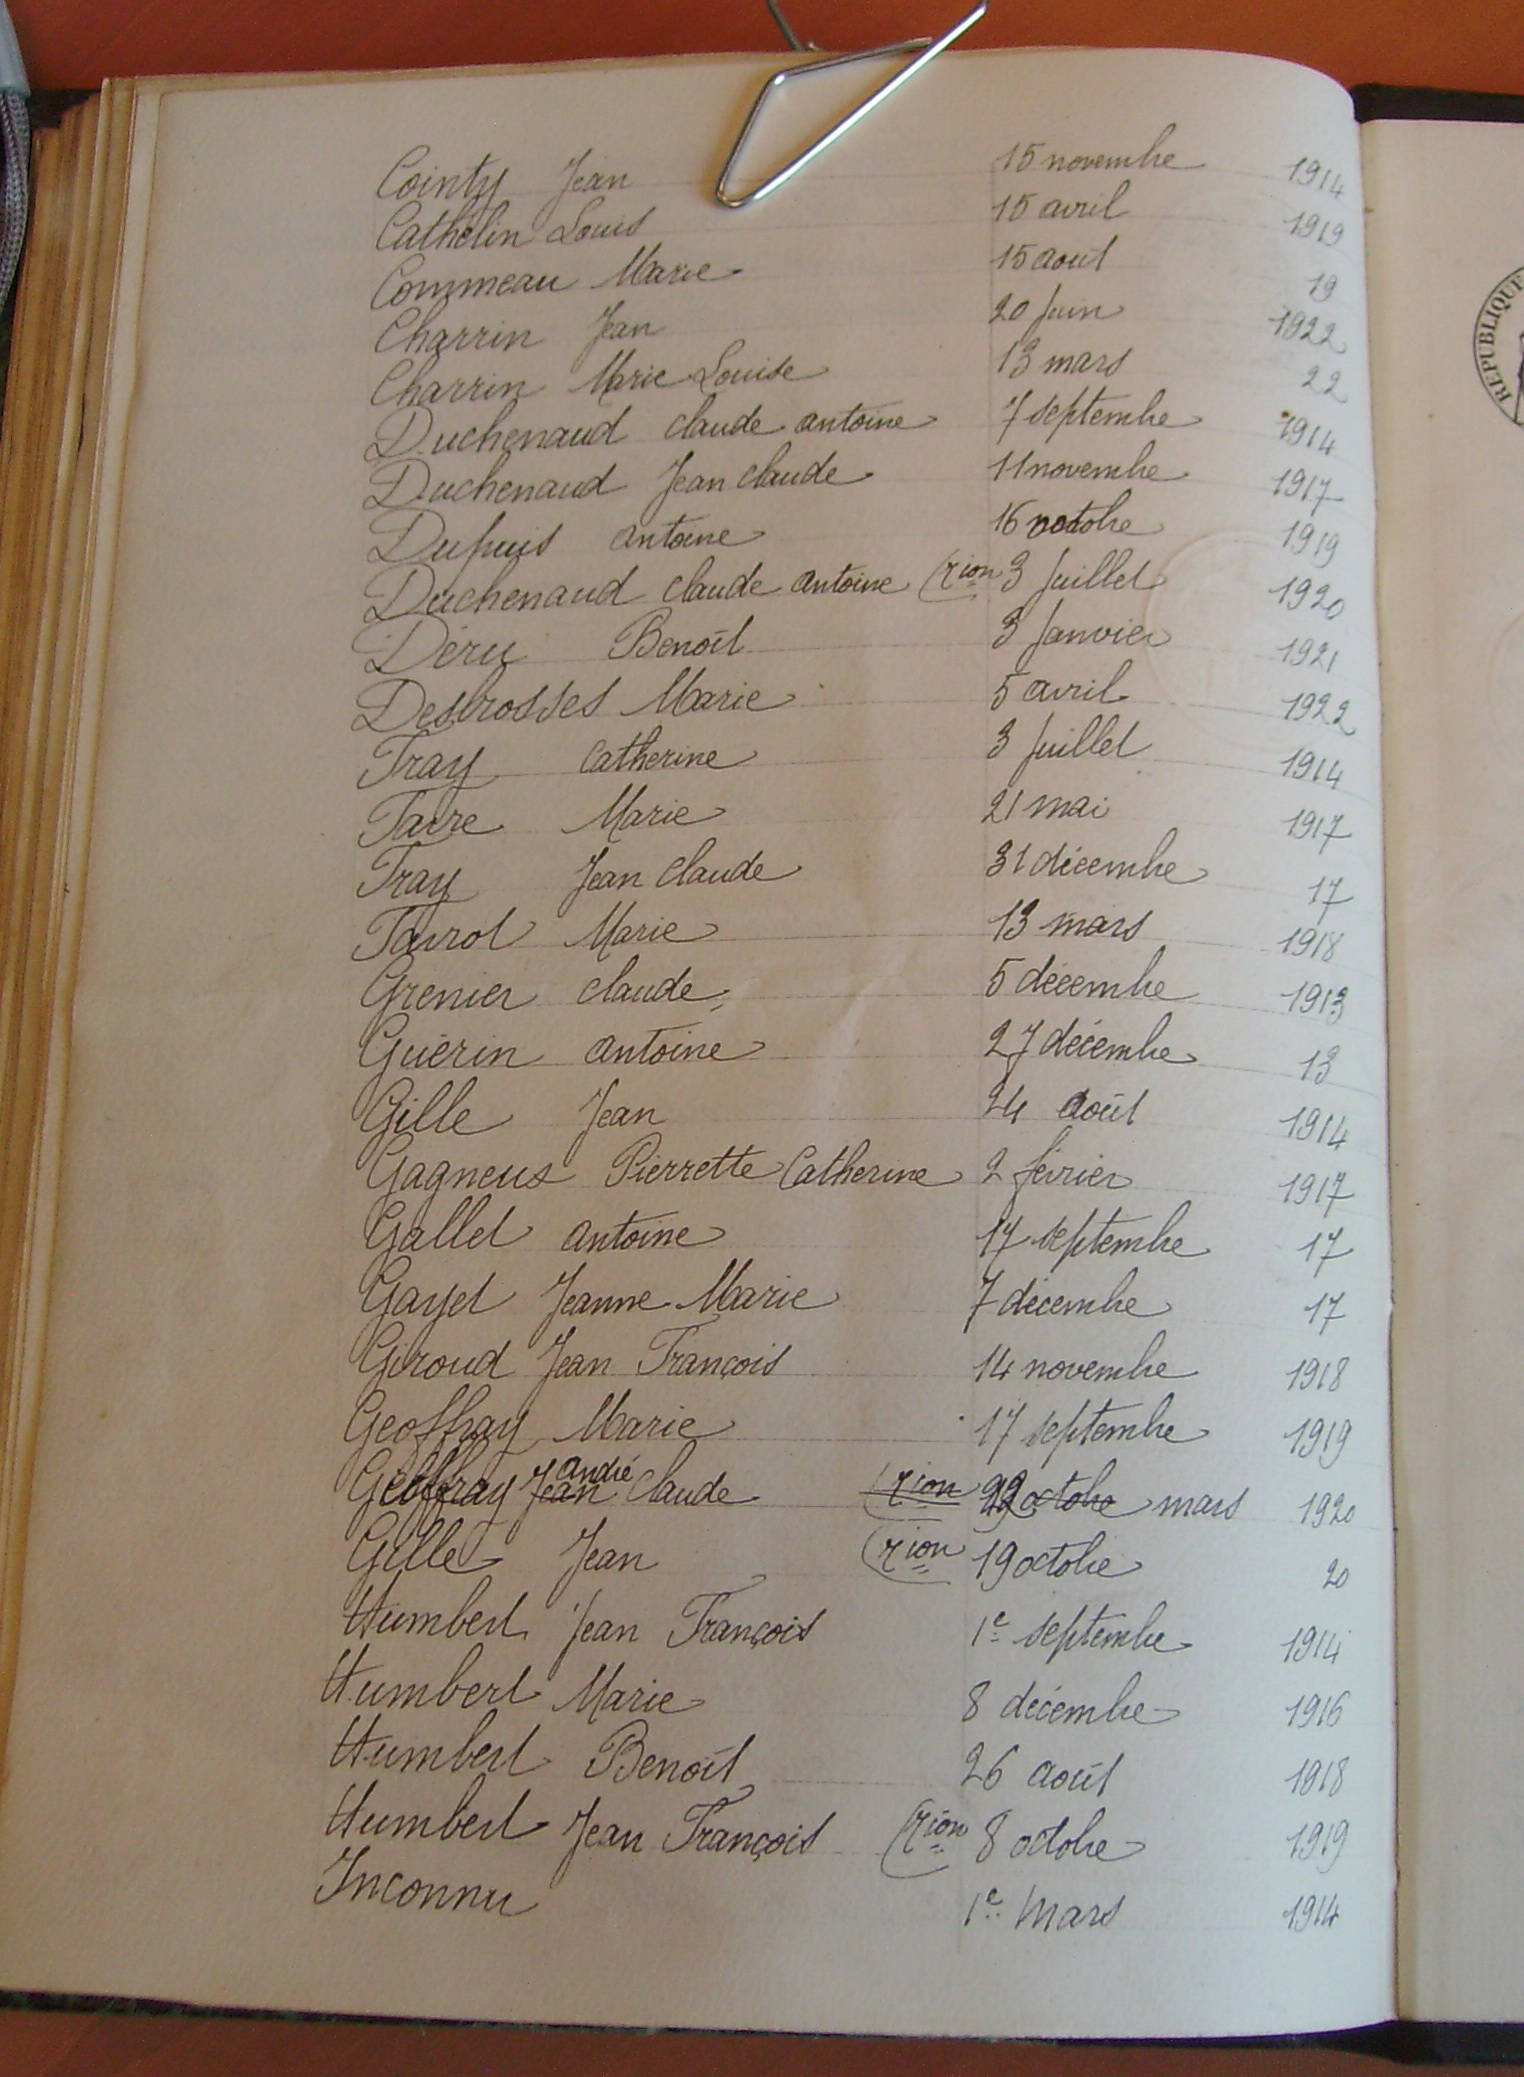 Cointy Jean 15 novembre 1914
Cathelin Louis 15 avril 1919
Commeau Marie 15 août 19
Charrin Jean 20 juin 1922
Charrin Marie Louise 13 mars 22
Duchenaud claude antoine 7 septembre 1914
Duchenaud Jean claude 11 novembre 1917
Dupuis antoine 16 octobre 1919
Duchenaud claude antoine (rion 3 Juillet 1920
Déru Benoît 3 Janvier 1921
Desbrosses Marie 5 avril 1922
Fray Catherine 3 Juillet 1914
Favre Marie 21 mai 1917
Fray Jean claude 31 décembre 17
Favrot Marie 13 mars 1918
Grenier claude 5 décembre 1913
Guérin antoine 27 décembre 13
Gille Jean 24 août 1914
Gagneux Pierrette Catherine 2 février 1917
Gallet antoine 17 septembre 17
Gayet Jeanne Marie 7 décembre 17
Giroud Jean François 14 novembre 1918
Geoffray Marie 17 septembre 1919
Geoffray Jean andré Claude (rion octobre mars 1920
Gille Jean (rion 19 octobre 20
Humbert Jean François 1e septembre 1914
Humbert Marie 8 décembre 1916
Humbert Benoît 26 août 1918
Humbert Jean François (rion 8 octobre 1919
Inconnu 1e Mars 1914
REPUBLIQUE